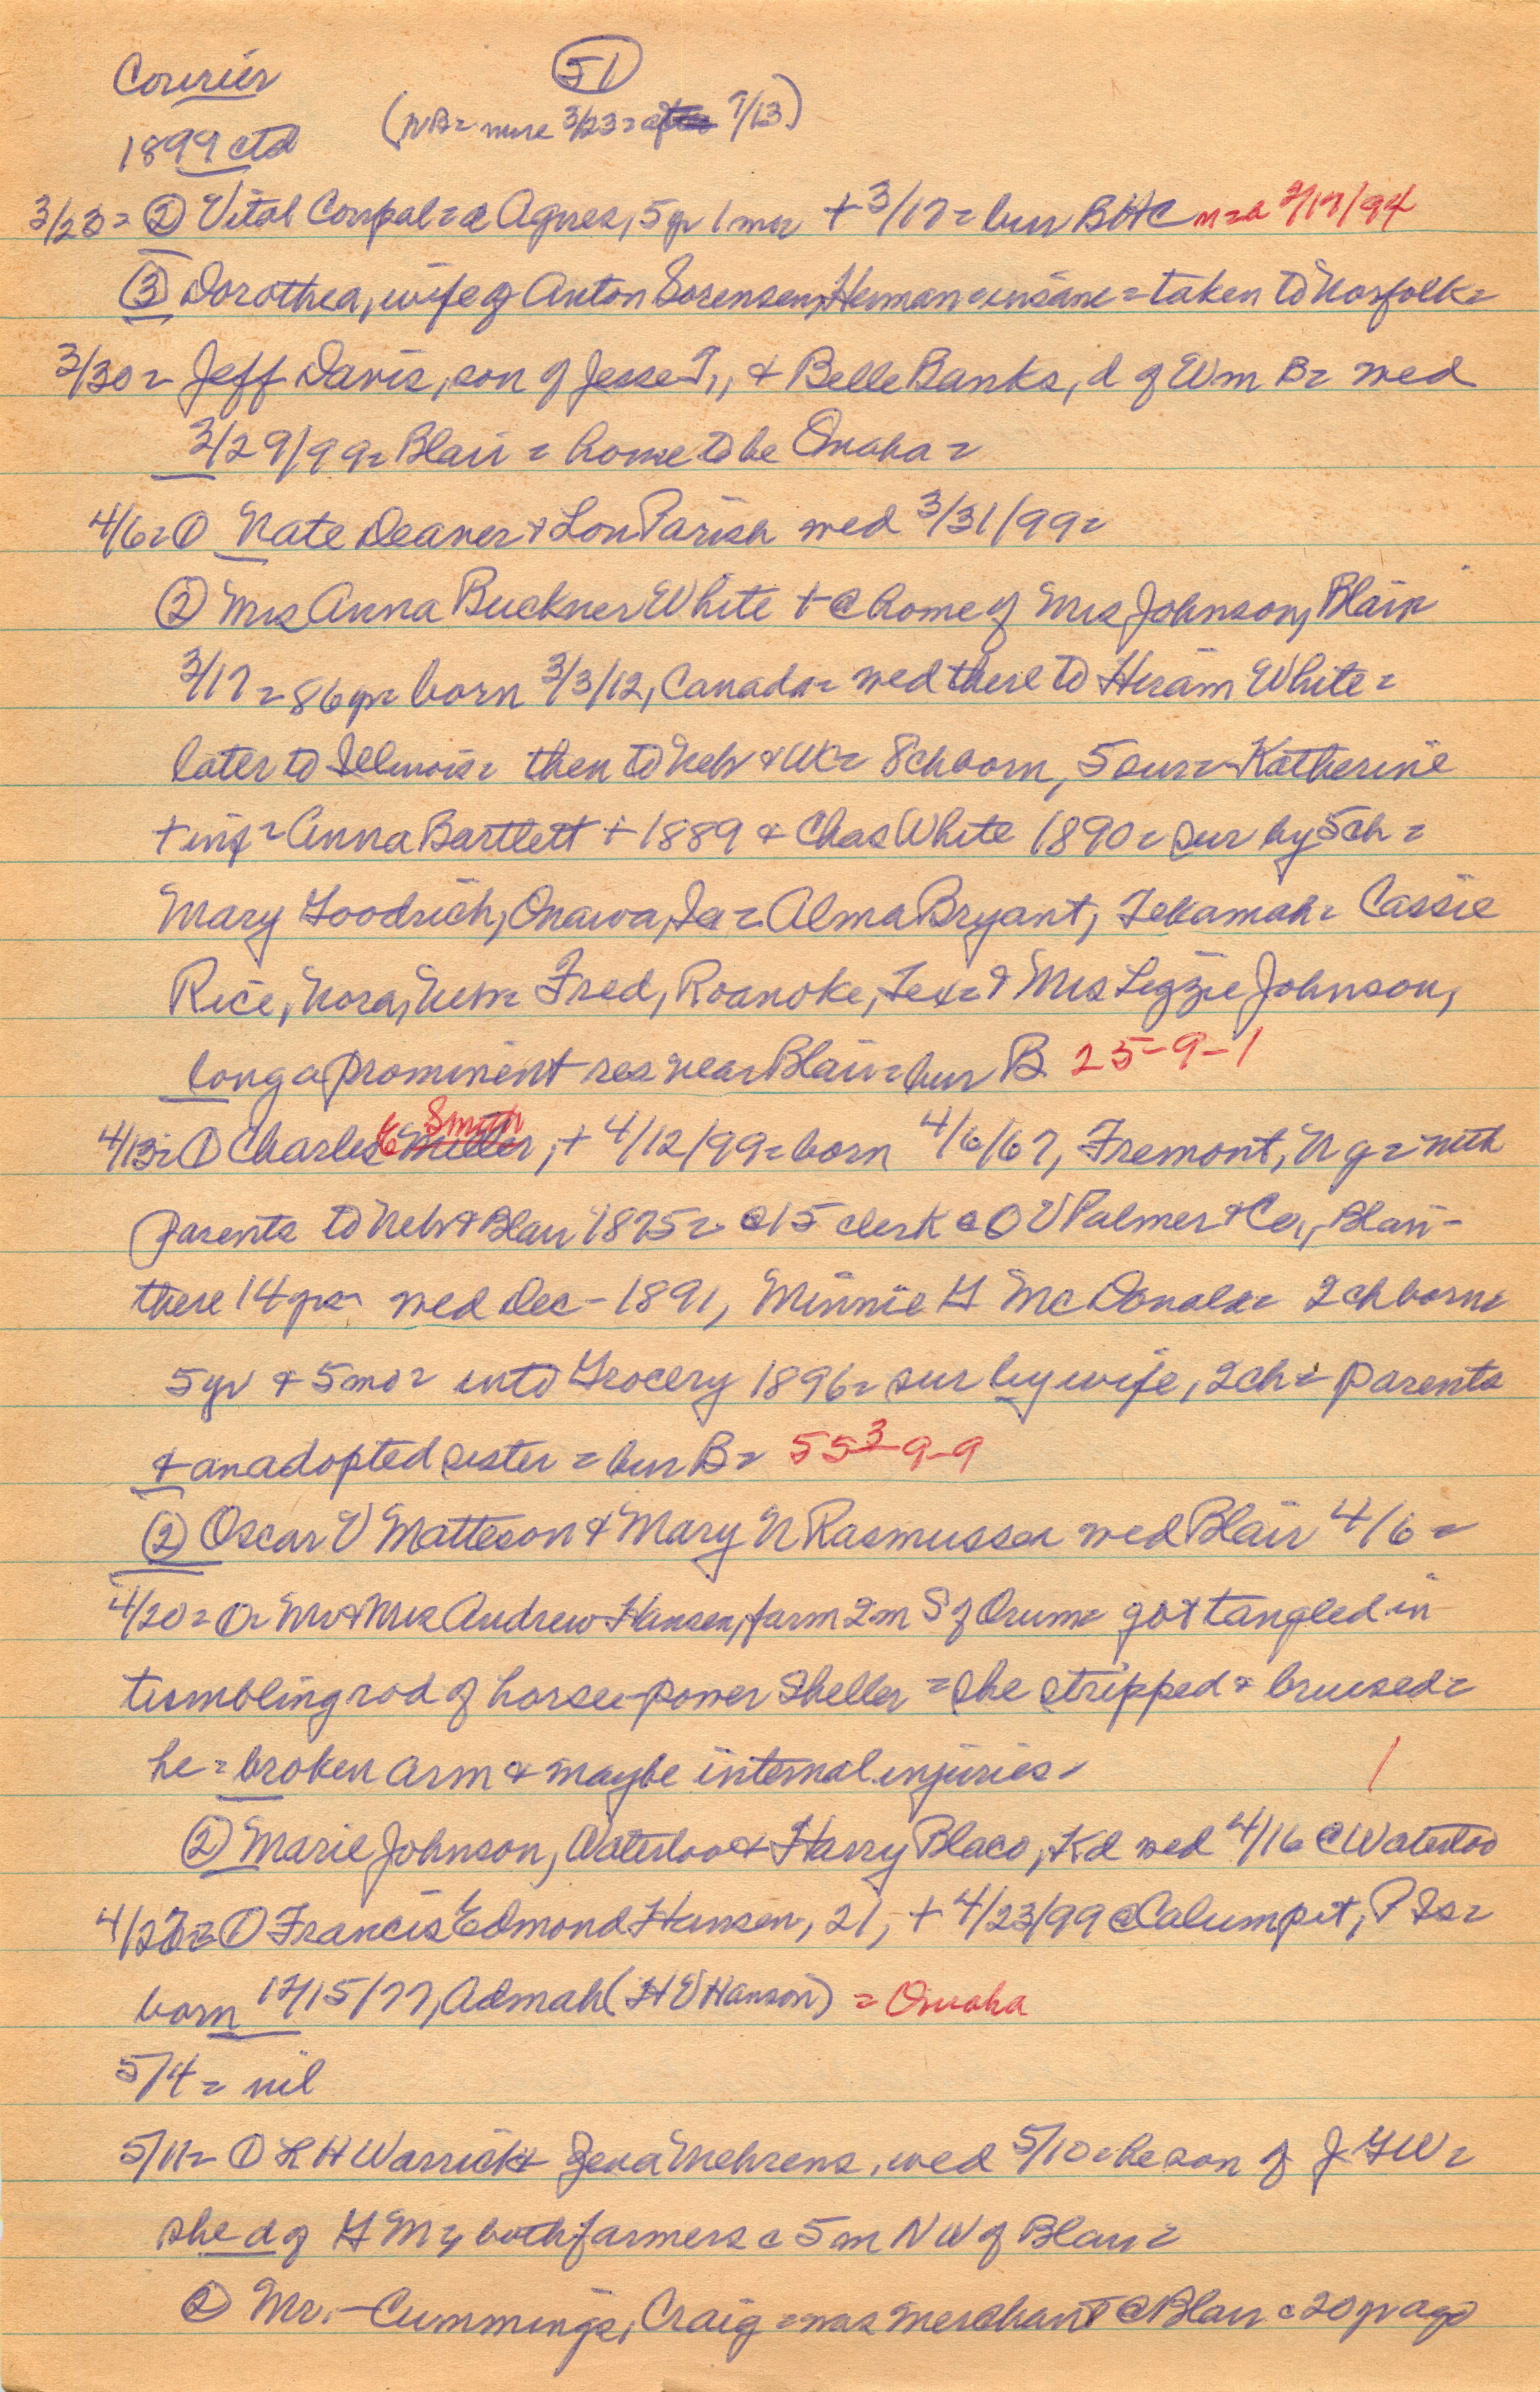 Courier
51
1899 ctd
(NB = more 3/23 = after 7/13)
3/23 = ② Vital Compal = d Agnes, 5 yr 1 mo + 3/17 = bur BHC
③ Dorothea, wife of Anton Sorensen, Herman = insane = taken to Norfolk =
3/30 = Jeff Davis, son of Jesse T., & Belle Banks, d of Wm B = wed
3/29/99 = Blair = home to be Omaha =
4/6 = ① Nate Deaver & Lou Parish wed 3/31/99 =
② Mrs Anna Buckner White + @ home of Mrs Johnson, Blair
3/17 = 86 yr = born 3/3/12, Canada = wed there to Hiram White =
later to Illinois = then to Neb & WC = 8 ch born, 5 sur = Katherine
+ inf = Anna Bartlett + 1889 & Chas White 1890 = sur by 5 ch =
Mary Goodrich, Onawa, Ia = Alma Bryant, Tekamah = Cassie
Rice, Nora, Neb = Fred, Roanoke, Tex = & Mrs Lizzie Johnson,
long a prominent res near Blair = bur B 25-9-1
4/13 = ① Charles E Smith Miller, + 4/12/99 = born 4/6/67, Fremont, N Y = with
parents to Neb & Blair 1875 = @ 15 clerk @ O V Palmer & Co, Blair -
there 14 yrs wed Dec - 1891, Minnie G McDonald = 2 ch born =
5 yr & 5 mo = into Grocery 1896 = sur by wife, 2 ch = parents
& an adopted sister = bur B = 553-9-9
② Oscar V Matteson & Mary N Rasmussen wed Blair 4/6 =
4/20 = ① Mr & Mrs Andrew Hansen, farm 2 m S of Orum = got tangled in
tumbling rod of horse-power Sheller = she stripped & bruised =
he = broken arm & maybe internal injuries =
② Marie Johnson, Waterloo & Harry Blaco, Kd wed 4/16 @ Waterloo
4/27 = ① Francis Edmond Hansen, 21, + 4/23/99 @ Calumpit, P Is =
born 12/15/77, Admah (H E Hanson) = Omaha
5/4 = nil
5/11 = ① L H Warrick & Zena Mehrens, wed 5/10 = he son of J G W =
she d of G M, both farmers c 5 m NW of Blair =
② Mr. - Cummings, Craig = was merchant @ Blair c 20 yr ago